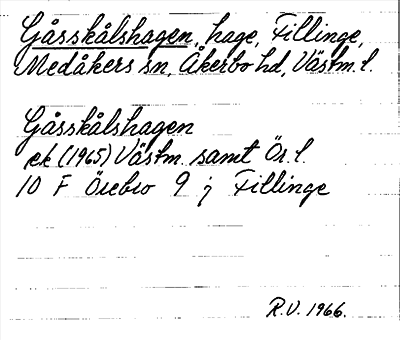 Gåsskålshagen, hage, Fillinge,
Medåkers sn, Åkerbo hd, Västm. l.
Gåsskålshagen
ek (1965) Västm. samt Ör. l.
10 F Örebro 9 j Fillinge
R.V. 1966.